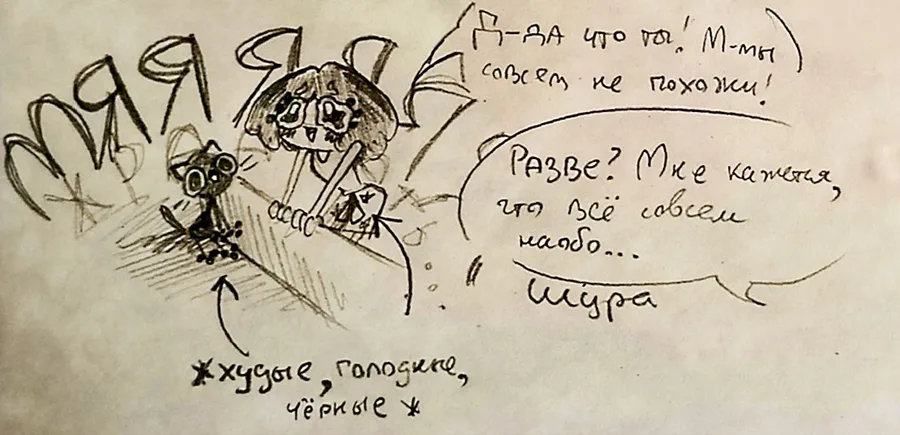 МЯЯЯЯ
Д-да что ты! М-мы
совсем не похожи!
Разве? Мне кажется,
что всё совсем
наобо...
Шура
*худые, голодные,
чёрные *